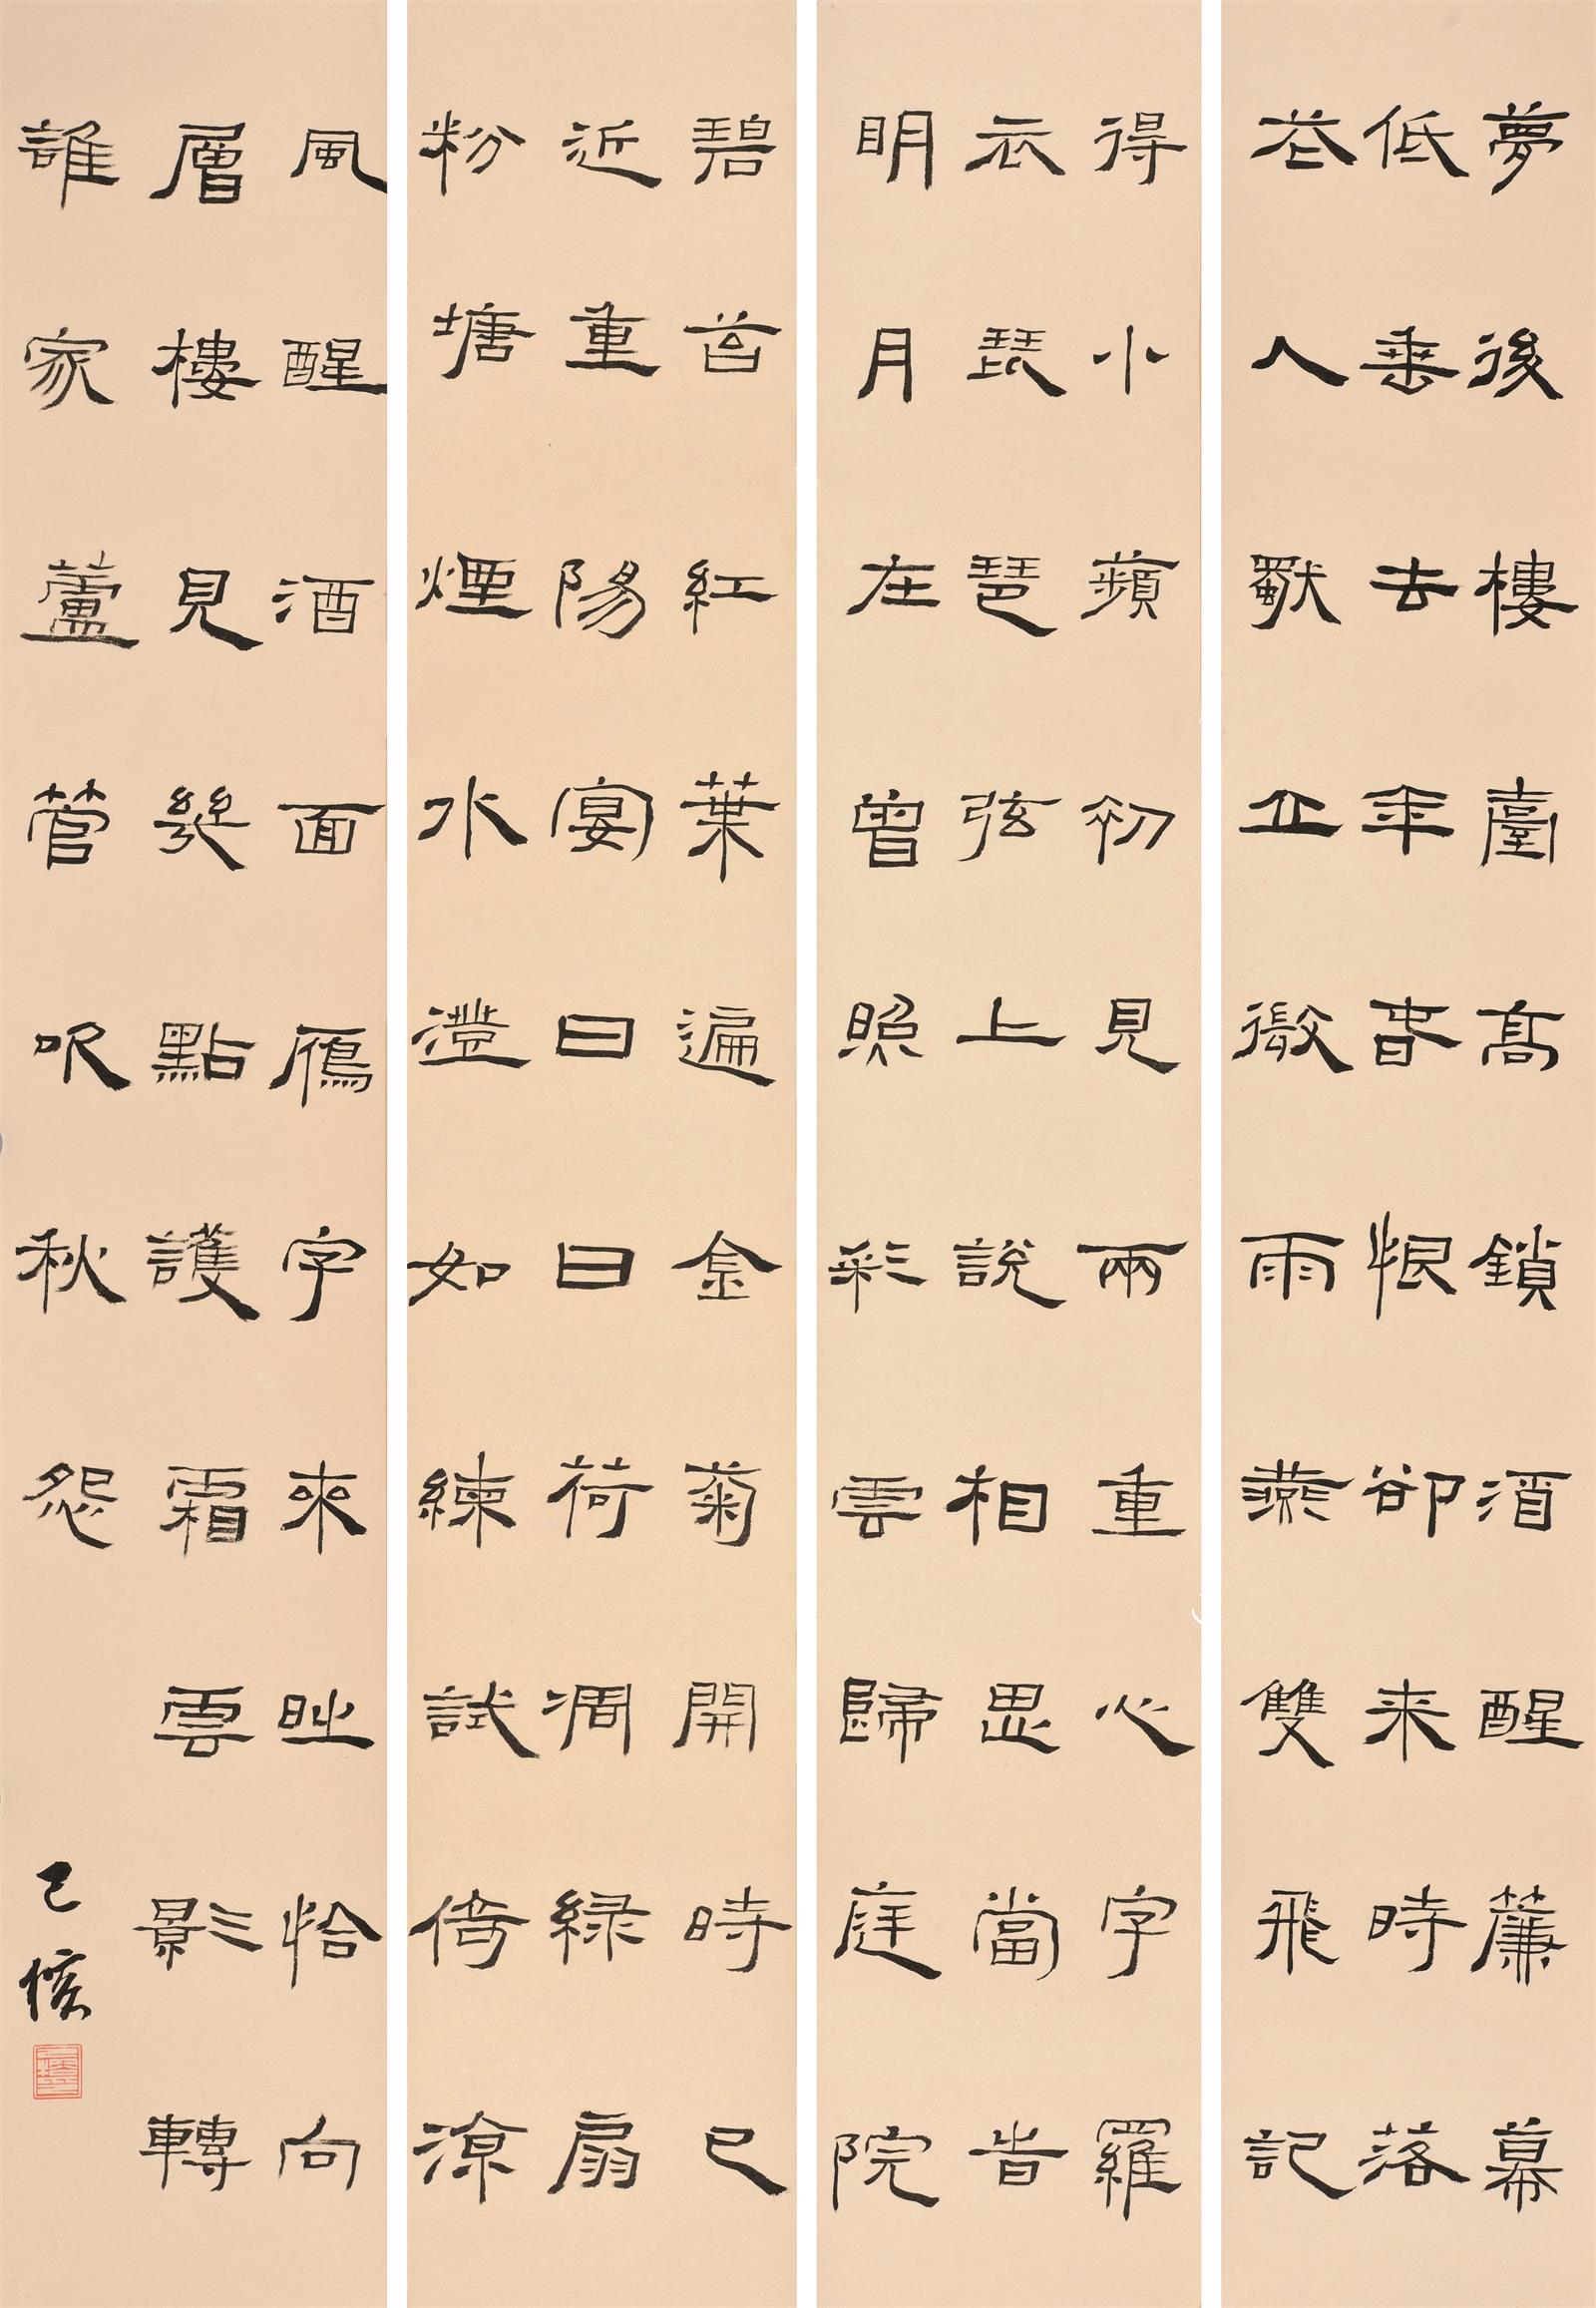 夢後樓臺高鎖酒醒簾幕
低垂去年春恨卻来時落
花人獨立微雨燕雙飛記
得小蘋初見兩重心字羅
衣琵琶弦上說相思當時
明月在曾照彩雲歸庭院
碧苔紅葉遍金菊開時已
近重陽宴日日荷凋緑扇
粉塘煙水澄如練試倚涼
風醒酒面雁字來時恰向
層樓見幾點護霜雲影轉
誰家蘆管吹秋怨